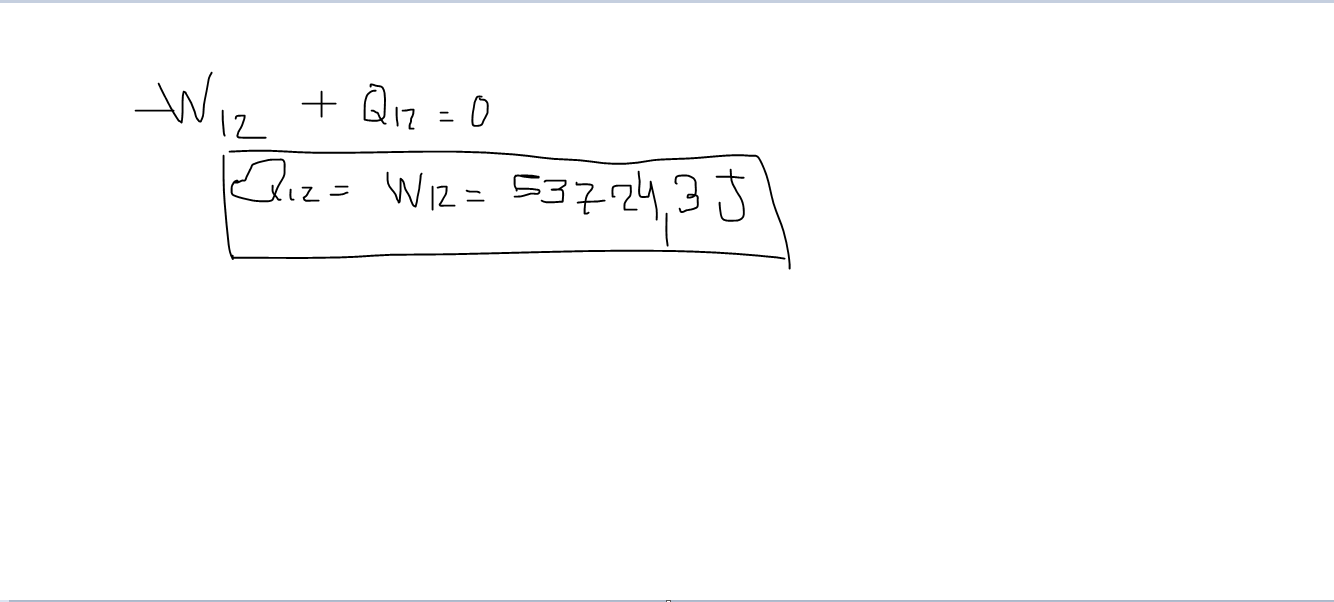 -W12 + Q12 = 0
Q12 = W12 = 53724,3 J